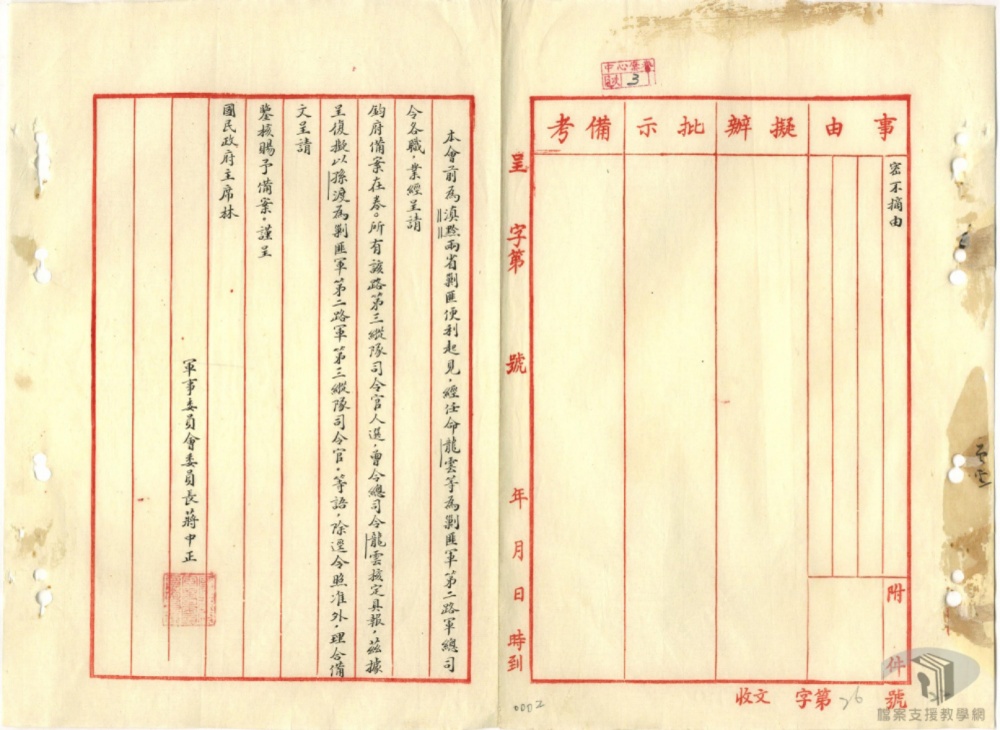 中心紫
3
事由
擬辦
批示
備考
密不摘由
附件
號
收文 字第26號
呈字第 號 年 月 日 時到
本會前為滇黔兩省剿匪便利起見，經任命龍雲等為剿匪軍第二路軍總司
令各職，業經呈請
鈞府備案在卷。所有該路第三縱隊司令官人選，曾令總司令龍雲核定具報，茲據
呈復擬以孫渡為剿匪軍第二路軍第三縱隊司令官，等語，除逕令照准外，理合備
文呈請
鑒核賜予備案，謹呈
國民政府主席林
軍事委員會委員長蔣中正
0002
檔案支援教學網